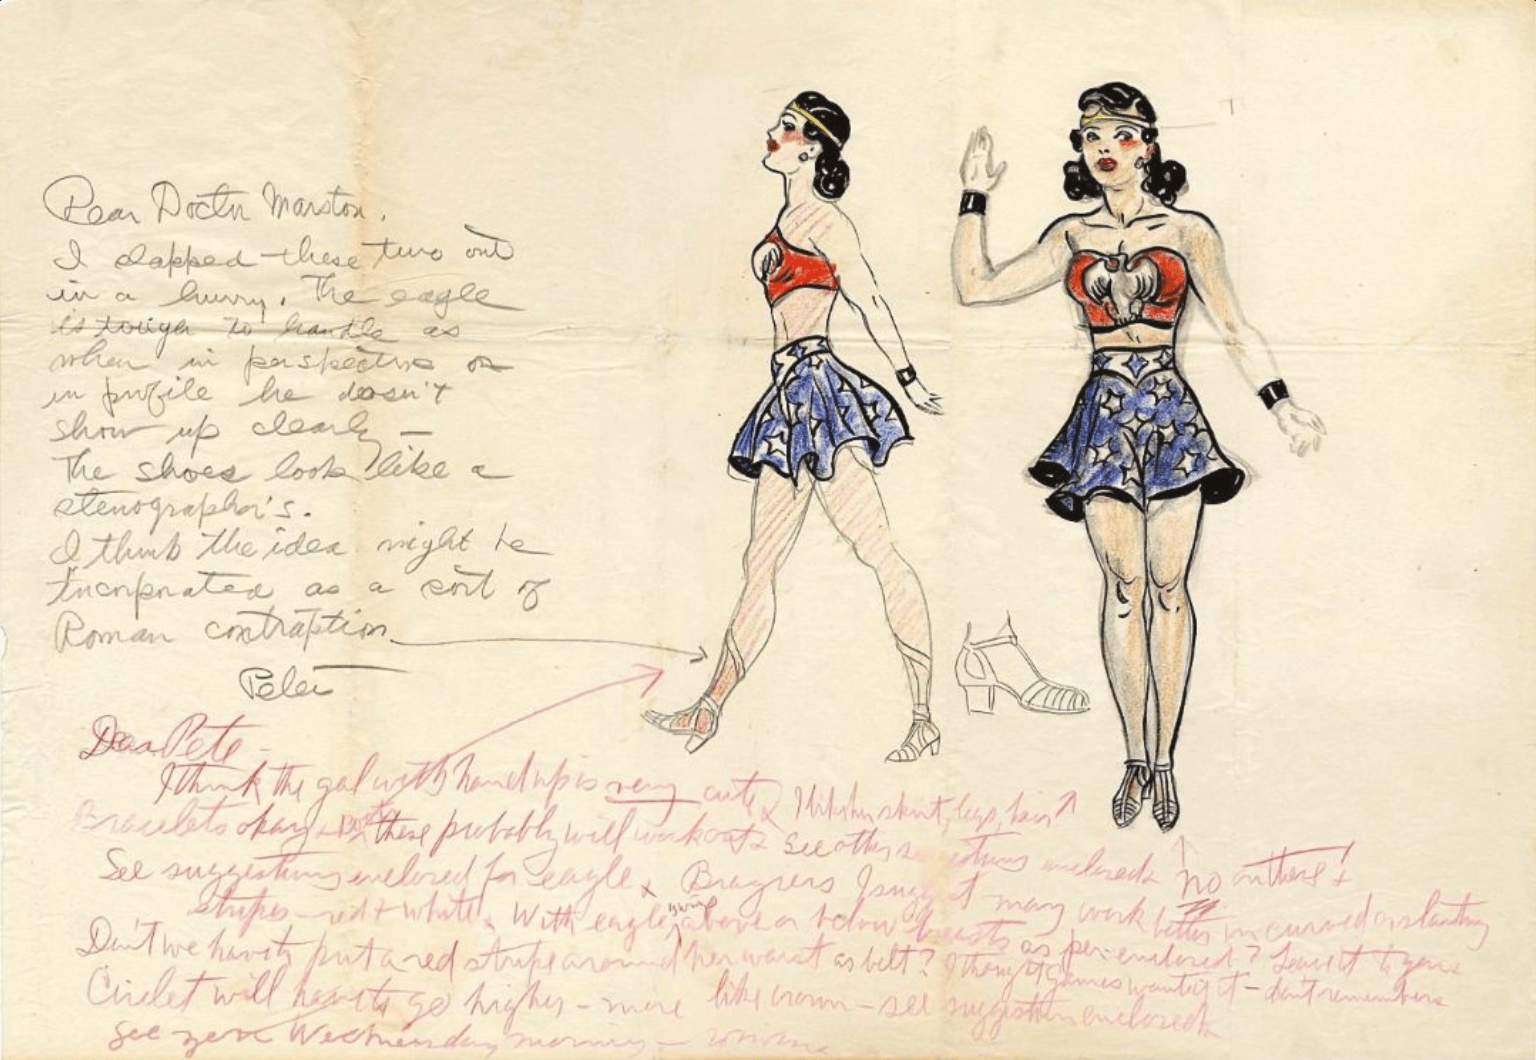 Dear Doctor Marston,
I slapped these two out
in a hurry. The eagle
is tough to handle as
when in perspective or
in profile he doesn't
show up clearly —
The shoes look like a
stenographer's.
I think the idea might be
incorporated as a sort of
Roman contraption
Peter
Dear Pete —
I think the gal with hand up is very cute. I like her skirt, legs, hair
Bracelets okay + these probably will work out. See other suggestions enclosed
No on these! +
See suggestions enclosed for eagle. I suggest may work better in curved or slanting
stripes — red + white. With eagle's wing above or below breasts as per enclosed? Leave it to you
Don't we have to put a red stripe around her waist as belt? I thought Gaines wanted it — don't remember
Circlet will have to go higher — more like crown — see suggestion enclosed
See you Wednesday morning —